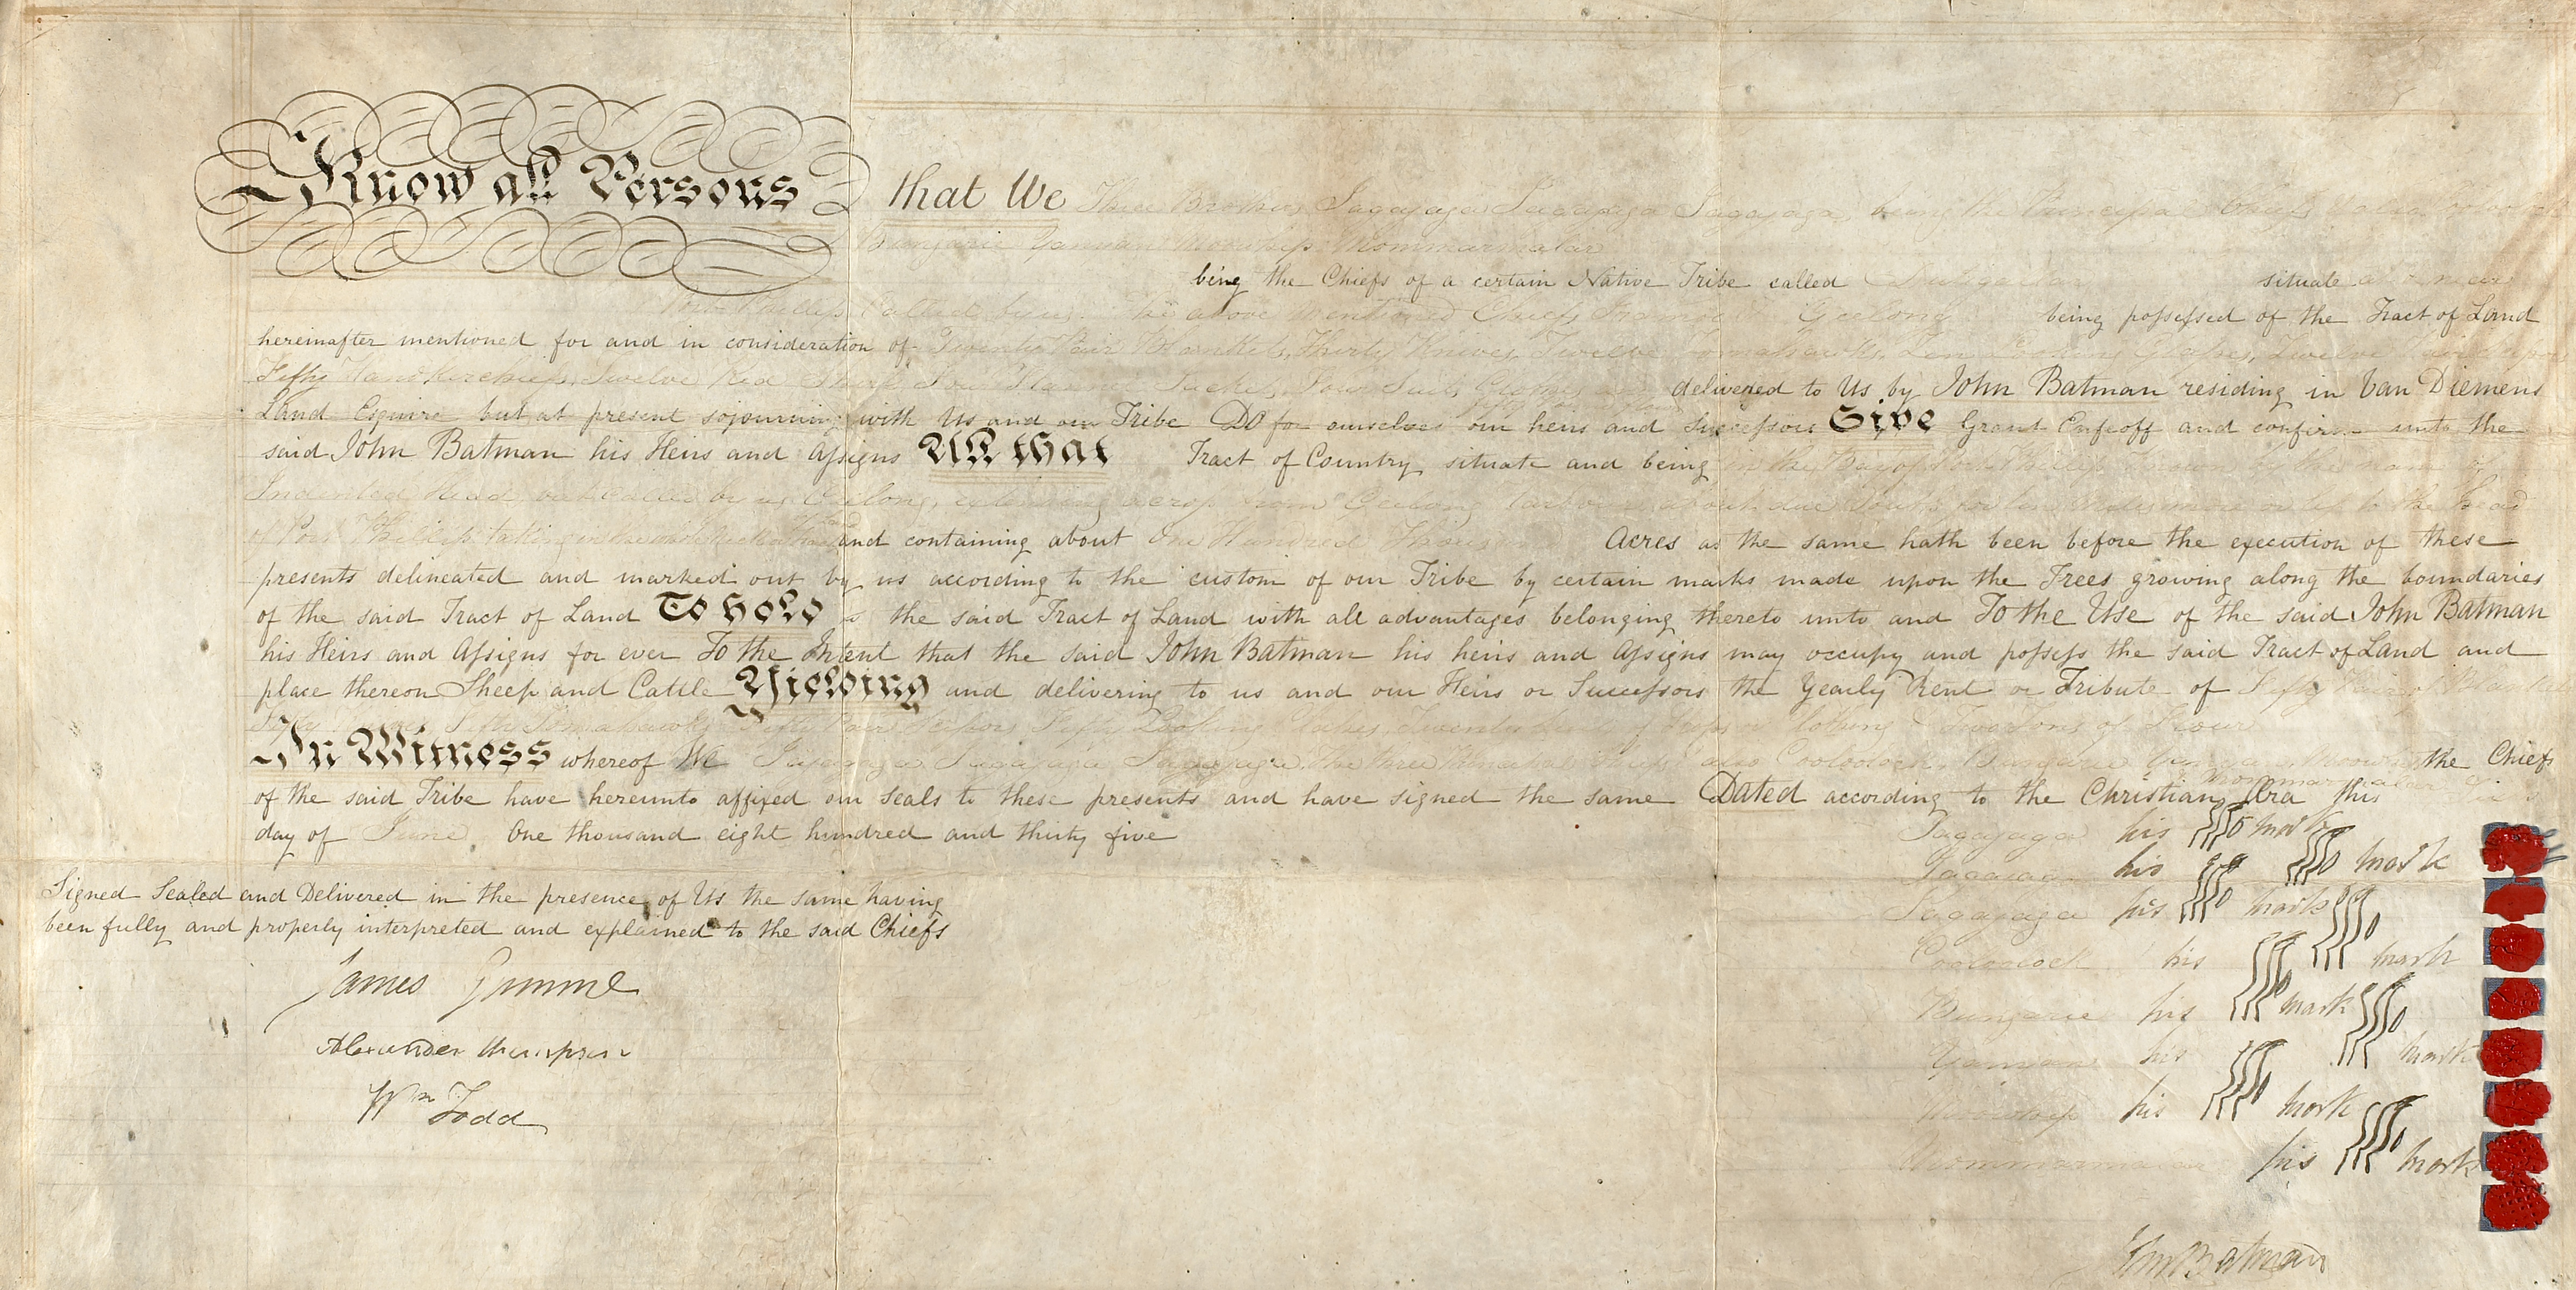 Know all Persons that We Three Brothers Jagajaga Jagajaga Jagajaga being the Principal Chiefs
Bungarie Yanyan Moowhip Mommarmalar
being the Chiefs of a certain Native Tribe called situate at near
Port Phillip Called by us the above mentioned Chiefs Geelong being possessed of the Tract of Land
hereinafter mentioned for and in consideration of Twenty Pair Blankets, Thirty Knives, Twelve Tomahawks, Ten Looking Glasses, Twelve
Fifty Handkerchiefs, Twelve Red Shirts, Four Flannel Jackets, Four Suits Cloathes delivered to Us by John Batman residing in Van Diemens
Land Esquire but at present sojourning with Us and our Tribe Do for ourselves our heirs and Successors Give Grant Enfeoff and confirm unto the
said John Batman his Heirs and Assigns All that Tract of Country situate and being in the Bay of Port Phillip known by the name of
Indented Head but called by us Geelong, extending across from Geelong harbour about due South for ten miles more or less to the head
of Port Phillip taking in the whole neck of land and containing about One Hundred Thousand Acres as the same hath been before the execution of these
presents delineated and marked out by us according to the custom of our Tribe by certain marks made upon the Trees growing along the boundaries
of the said Tract of Land To hold the said Tract of Land with all advantages belonging thereto unto and To the Use of the said John Batman
his Heirs and Assigns for ever To the Intent that the said John Batman his heirs and Assigns may occupy and possess the said Tract of Land and
place thereon Sheep and Cattle Yielding and delivering to us and our Heirs or Successors the Yearly Rent or Tribute of Fifty Pair of Blankets
Fifty Knives Fifty Tomahawks Fifty Pair Scissors Fifty Looking Glasses, Twenty Suits of Slops or Clothing & Two Tons of Flour
In Witness whereof We Jagajaga Jagajaga Jagajaga the three Principal Chiefs also Cooloolock, Bungarie Yanyan, Moowhip the Chiefs
Mommarmalar
of the said Tribe have hereunto affixed our seals to these presents and have signed the same Dated according to the Christian Æra this
day of June One thousand eight hundred and thirty five
Jagajaga his mark
Jagajaga his mark
Signed Sealed and Delivered in the presence of Us the same having
been fully and properly interpreted and explained to the said Chiefs
Jagajaga his mark
Cooloolock his mark
James Gumm
Bungarie his mark
Alexander Thompson
Yanyan his mark
Wm Todd
Moowhip his mark
Mommarmalar his mark
John Batman